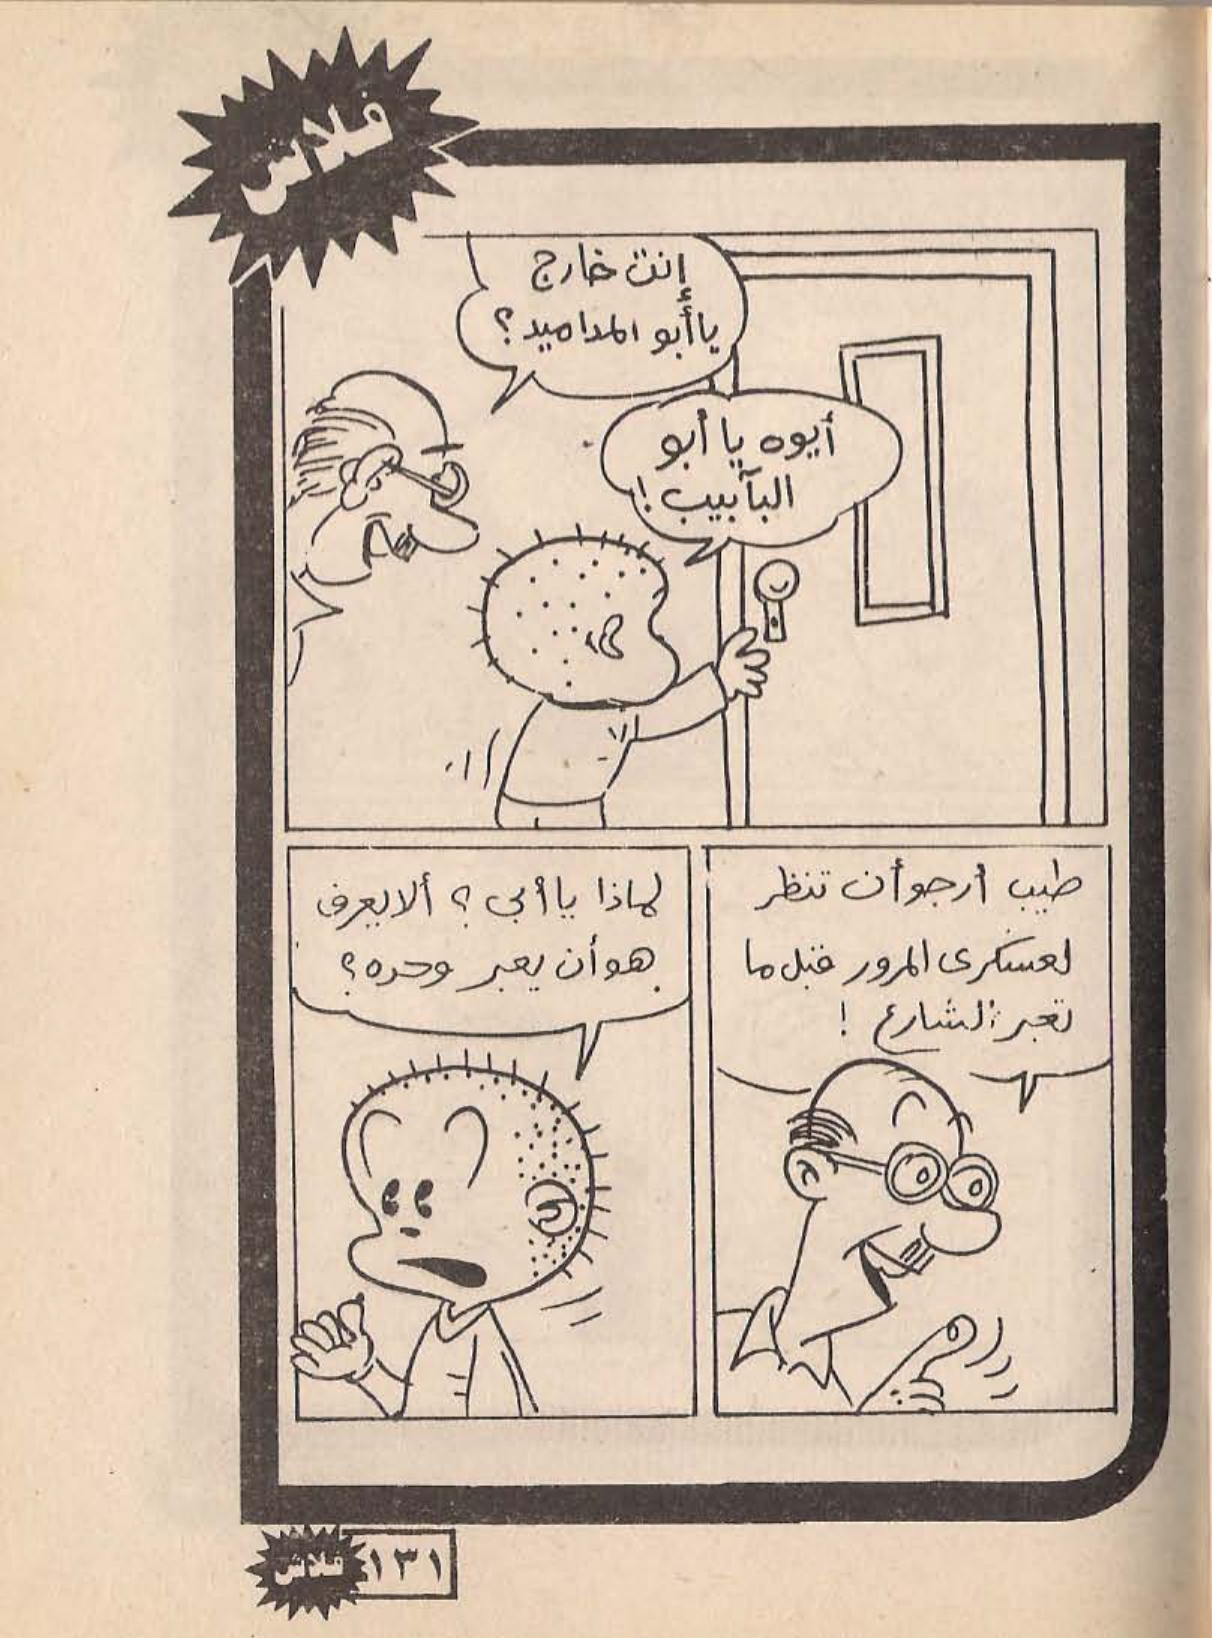 فلاش
إنت خارج
يا أبو المداميد؟
أيوه يا أبو
البآبيب!
طيب أرجو أن تنظر
لعسكرى المرور قبل ما
تعبر الشارع !
لماذا يا أبى ؟ ألا يعرف
هو أن يعبر وحده؟
فلاش ١٣١